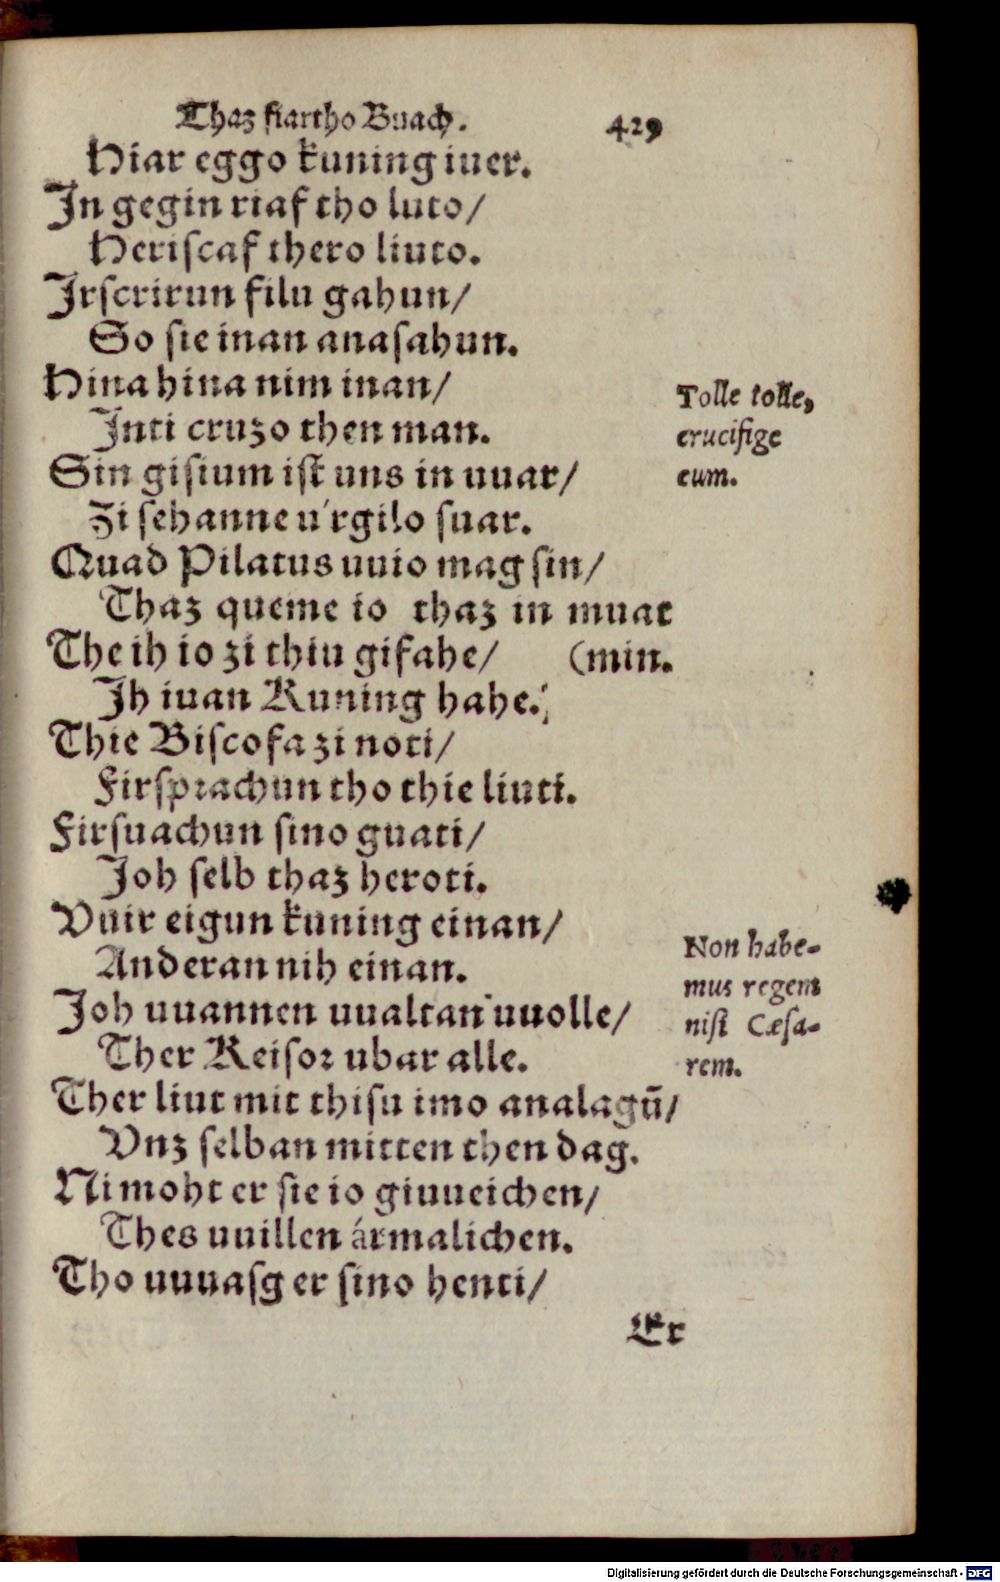 Thaz fiartho Buach. 429
Hiar eggo kuning iuer.
In gegin riaf tho luto/
Heriscaf thero liuto.
Irscrirun filu gahun/
So sie inan anasahun.
Hina hina nim inan/
Inti cruzo then man.
Sin gisium ist uns in uuar/
Zi sehanne urgilo suar.
Quad Pilatus uuio mag sin/
Thaz queme io thaz in muat
The ih io zi thiu gifahe/ (min.
Ih iuan Kuning hahe.
Thie Biscofa zi noti/
Firsprachun tho thie liuti.
Firsuachun sino guati/
Joh selb thaz heroti.
Vuir eigun kuning einan/
Anderan nih einan.
Joh uuannen uualtan uuolle/
Ther Keisor ubar alle.
Ther liut mit thisu imo analagũ/
Vnz selban mitten then dag.
Ni moht er sie io giuueichen/
Thes uuillen ármalichen.
Tho uuuasg er sino henti/
Er
Tolle tolle,
crucifige
eum.
Non habe-
mus regem
nisi Cæsa-
rem.
Digitalisierung gefördert durch die Deutsche Forschungsgemeinschaft - DFG